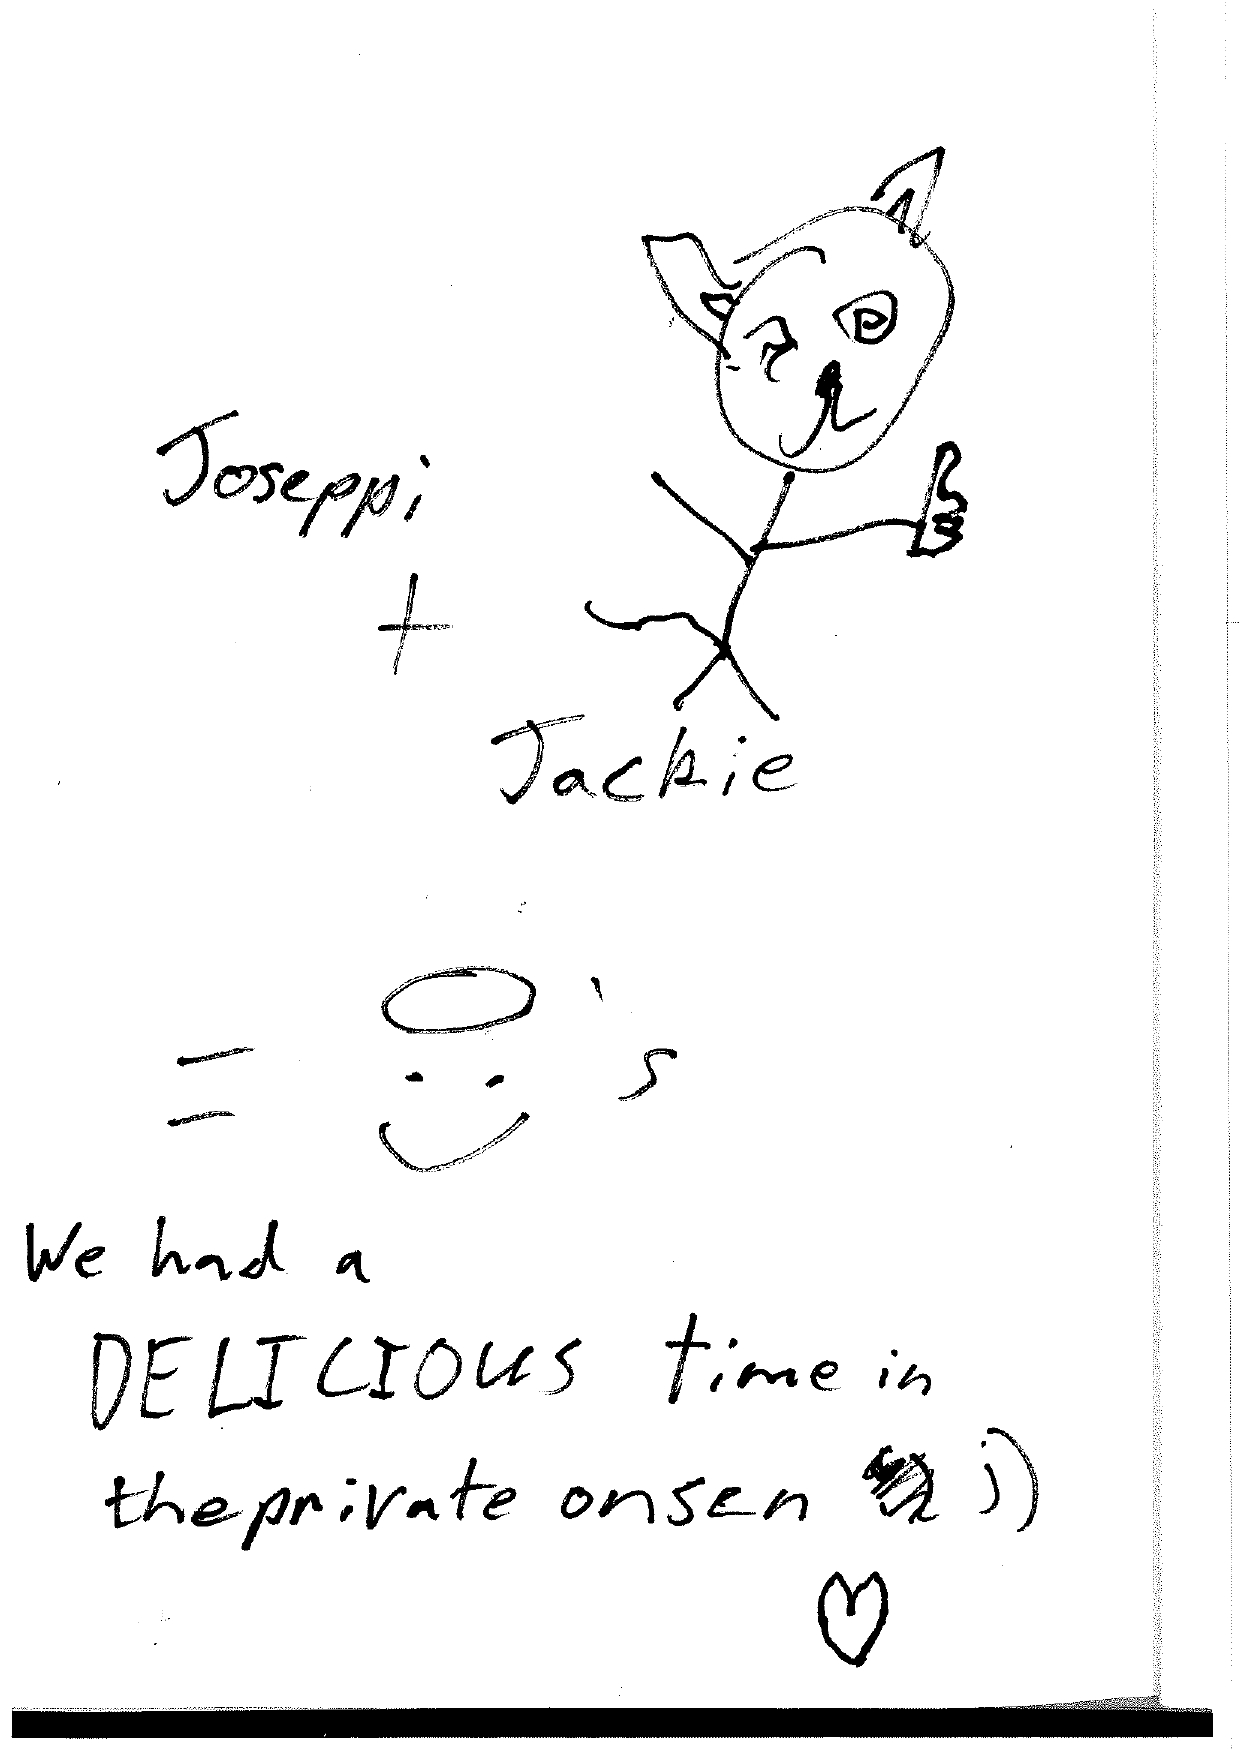 Joseppi
+
Jackie
= 's
We had a
DELICIOUS time in
the private onsen ;)